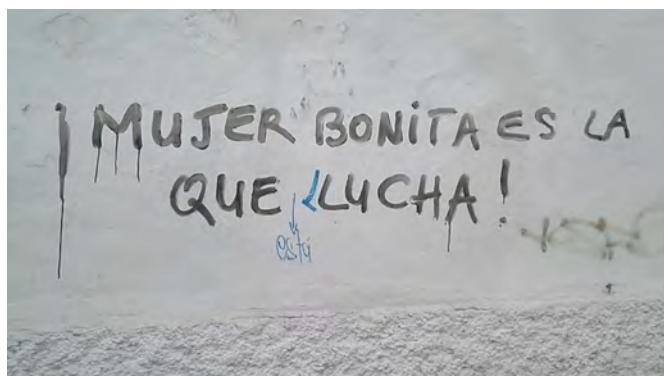 ¡MUJER BONITA ES LA
QUE LUCHA!